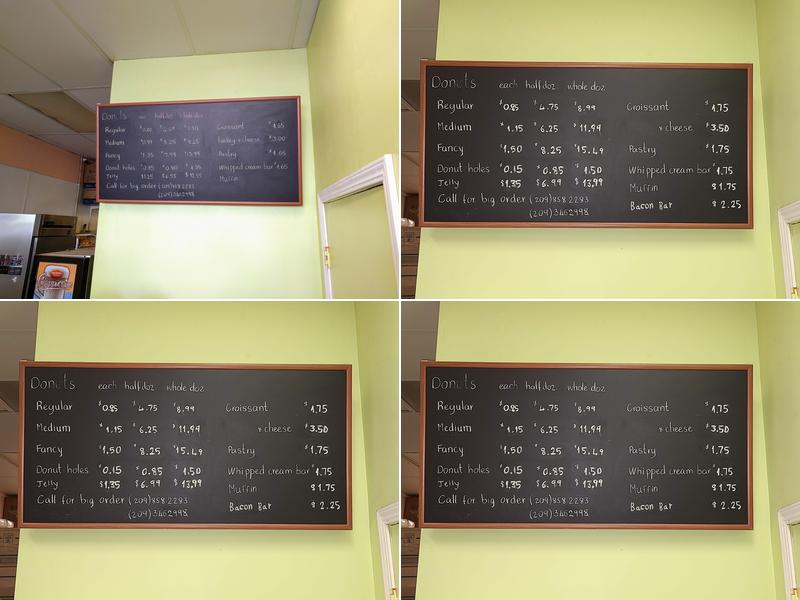 Donuts each half doz whole doz
Regular
Croissant $4.65
Medium
Turkey & cheese
Fancy
Pastry
Donut holes
Whipped cream bar $4.65
Jelly
Muffin
Call for big order (209) 858 2293
(209) 3462998
Donuts each half doz whole doz
Regular $0.85 $4.75 $8.99 Croissant $1.75
Medium $1.15 $6.25 $11.99 & cheese $3.50
Fancy $1.50 $8.25 $15.49 Pastry $1.75
Donut holes $0.15 $0.85 $1.50 Whipped cream bar $1.75
Jelly $1.35 $6.99 $13.99 Muffin $1.75
Call for big order (209) 858 2293 Bacon Bar $2.25
(209) 3462998
Donuts each half doz whole doz
Regular $0.85 $4.75 $8.99 Croissant $1.75
Medium $1.15 $6.25 $11.99 & cheese $3.50
Fancy $1.50 $8.25 $15.49 Pastry $1.75
Donut holes $0.15 $0.85 $1.50 Whipped cream bar $1.75
Jelly $1.35 $6.99 $13.99 Muffin $1.75
Call for big order (209) 858 2293 Bacon Bar $2.25
(209) 3462998
Donuts each half doz whole doz
Regular $0.85 $4.75 $8.99 Croissant $1.75
Medium $1.15 $6.25 $11.99 & cheese $3.50
Fancy $1.50 $8.25 $15.49 Pastry $1.75
Donut holes $0.15 $0.85 $1.50 Whipped cream bar $1.75
Jelly $1.35 $6.99 $13.99 Muffin $1.75
Call for big order (209) 858 2293 Bacon Bar $2.25
(209) 3462998